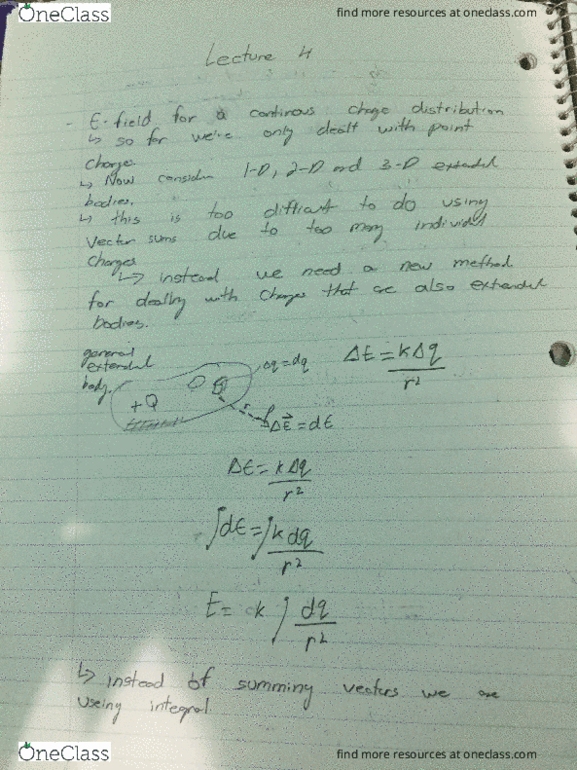 OneClass
find more resources at oneclass.com
Lecture 4
- E-field for a continous charge distribution
↳ so far we've only dealt with point
charge.
↳ Now consider 1-D, 2-D and 3-D extended
bodies.
↳ this is too difficult to do using
vector sums due to too many individual
charges
↳ instead we need a new method
for dealing with charges that are also extended
bodies.
general
extended
body.
+Q
Δq = dq
r
ΔE⃗ = dE
ΔE = kΔq / r²
ΔE = kΔq / r²
∫dE = ∫k dq / r²
E = k ∫ dq / r²
↳ instead of summing vectors we are
using integral
OneClass
find more resources at oneclass.com